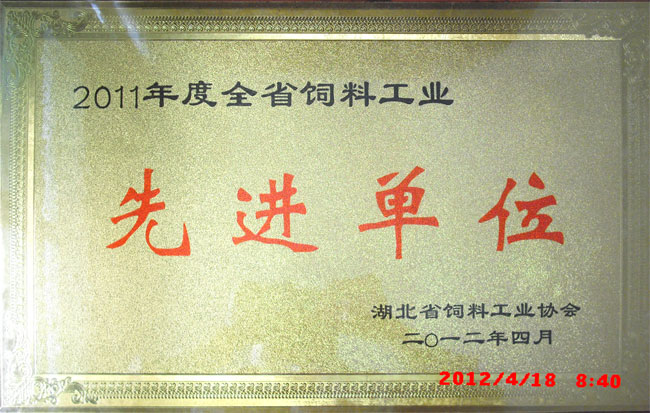 2011年度全省饲料工业
先进单位
湖北省饲料工业协会
二〇一二年四月
2012/4/18 8:40